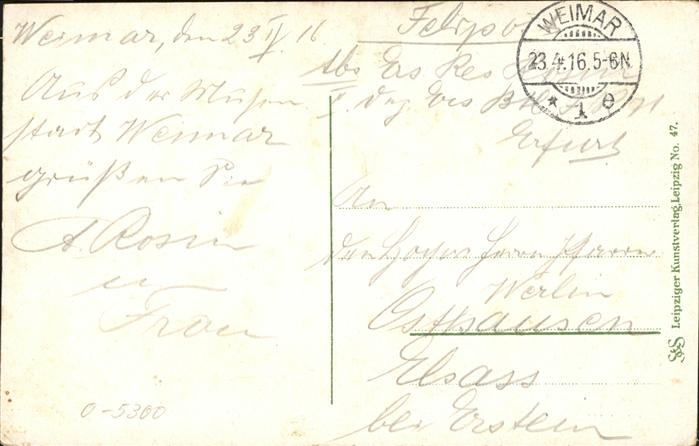 Weimar, den 23 IV. 16
Aus der Musen
stadt Weimar
grüßen Sie
A. Rosin
u
Frau
0-5300
Feldpo
WEIMAR
23.4.16.5-6N
* 1 e
Abs Ers Res
Erfurt
An
den Herrn Pfarrer
Werlin
Osthausen
Elsass
bei Erstein
S&S Leipziger Kunstverlag, Leipzig No. 47.